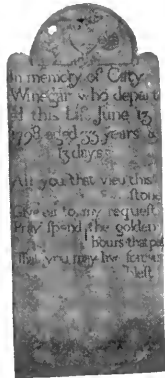 In memory of Caty
Winegar who depart
d this Life June 13
1798 aged 33 years &
13 days
All you that view this
stone
Give ear to my request
Pray spend the golden
hours that
That you may live forever
blest